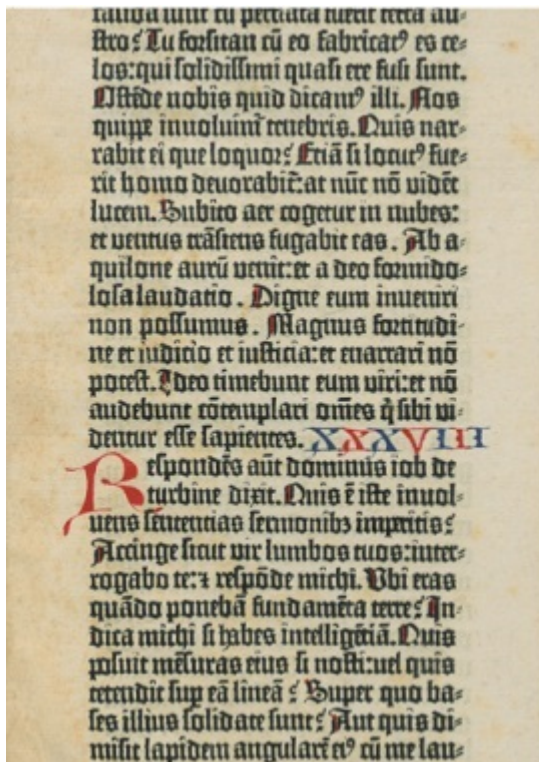 calida sunt cū perflata fuerit terra au⸗
stro? Tu forsitan cū eo fabricatꝰ es ce⸗
los: qui solidissimi quasi ere fusi sunt.
Ostēde nobis quid dicamꝰ illi. Nos
quippe inuoluimͬ tenebris. Quis nar⸗
rabit ei que loquor? Etiā si locutꝰ fue⸗
rit homo deuorabit̄: at nūc nō vidēt
lucem. Subito aer cogetur in nubes:
et ventus trāsiens fugabit eas. Ab a⸗
quilone aurū venit: et a deo formido⸗
losa laudatio. Digne eum inuenire
non possumus. Magnus fortitudi⸗
ne et iudicio et iusticia: et enarrari nō
potest. Ideo timebunt eum viri: et nō
audebunt cōtemplari om̄es q̇ sibi vi⸗
dentur esse sapientes. XXXVIII
Respondēs aūt dominus iob de
turbine dixit. Quis ē iste inuol⸗
uens sententias sermonibꝫ imperitis?
Accinge sicut vir lumbos tuos: inter⸗
rogabo te: ⁊ respōde michi. Vbi eras
quādo ponebā fundamēta terre? In⸗
dica michi si habes intelligētiā. Quis
posuit mēsuras eius si nosti: uel quis
tetendit sup eā lineā? Super quo ba⸗
ses illius solidate sunt? Aut quis di⸗
misit lapidem angularē eiꝰ cū me lau⸗